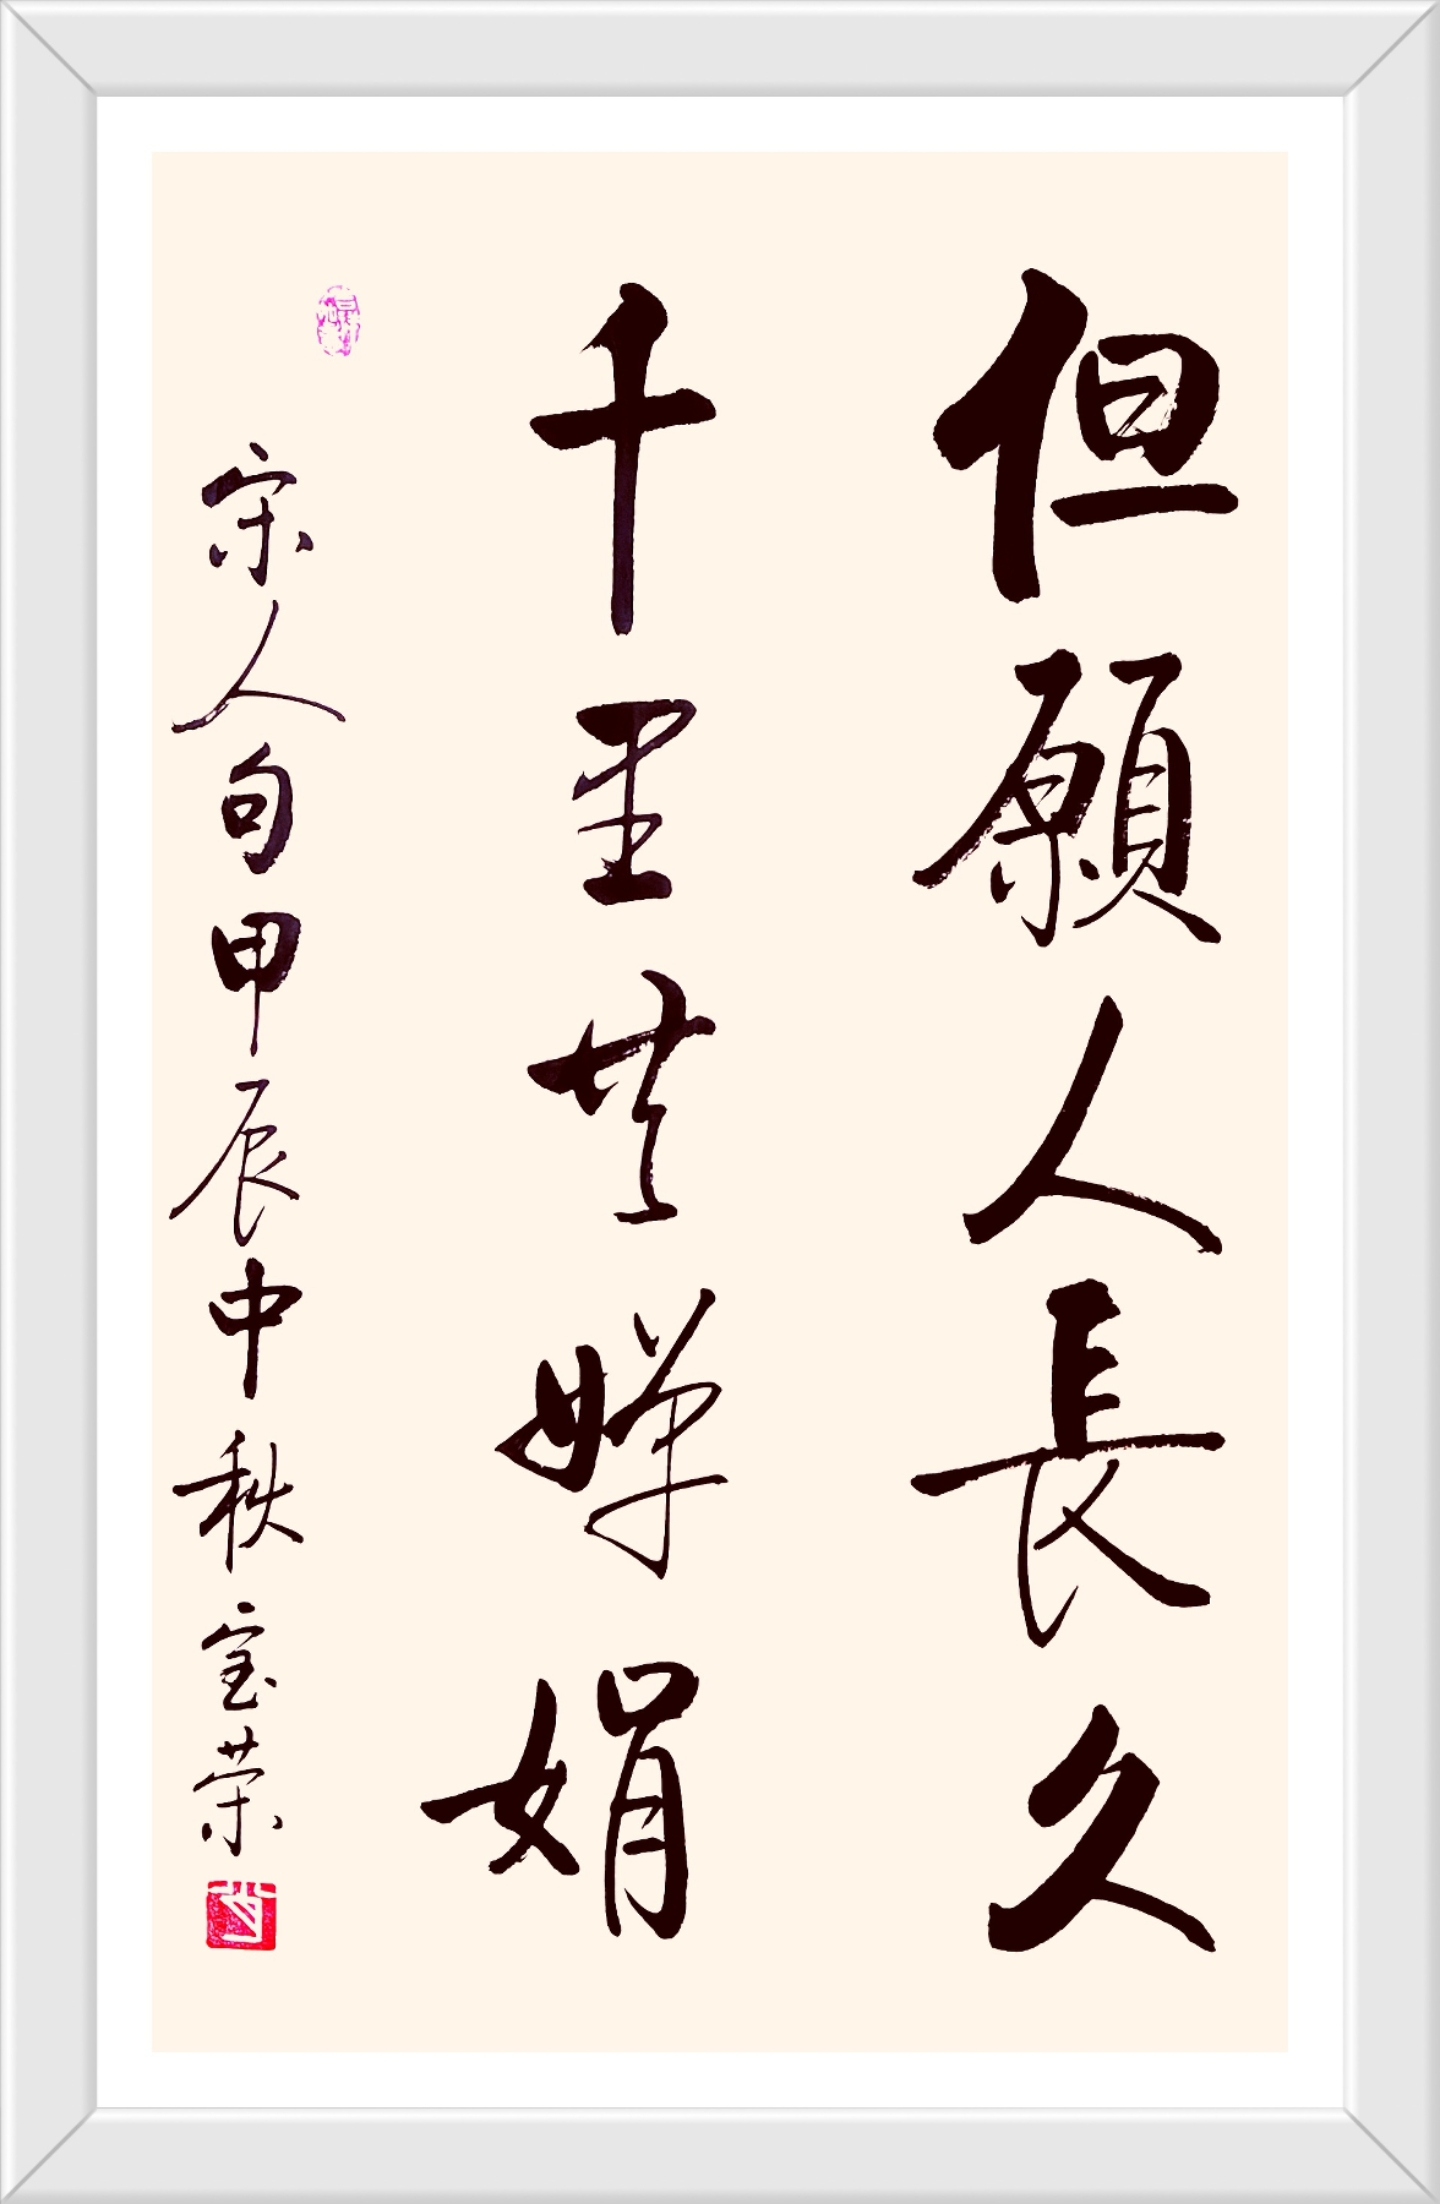 但願人長久
千里共嬋娟
宋人句甲辰中秋宝荣